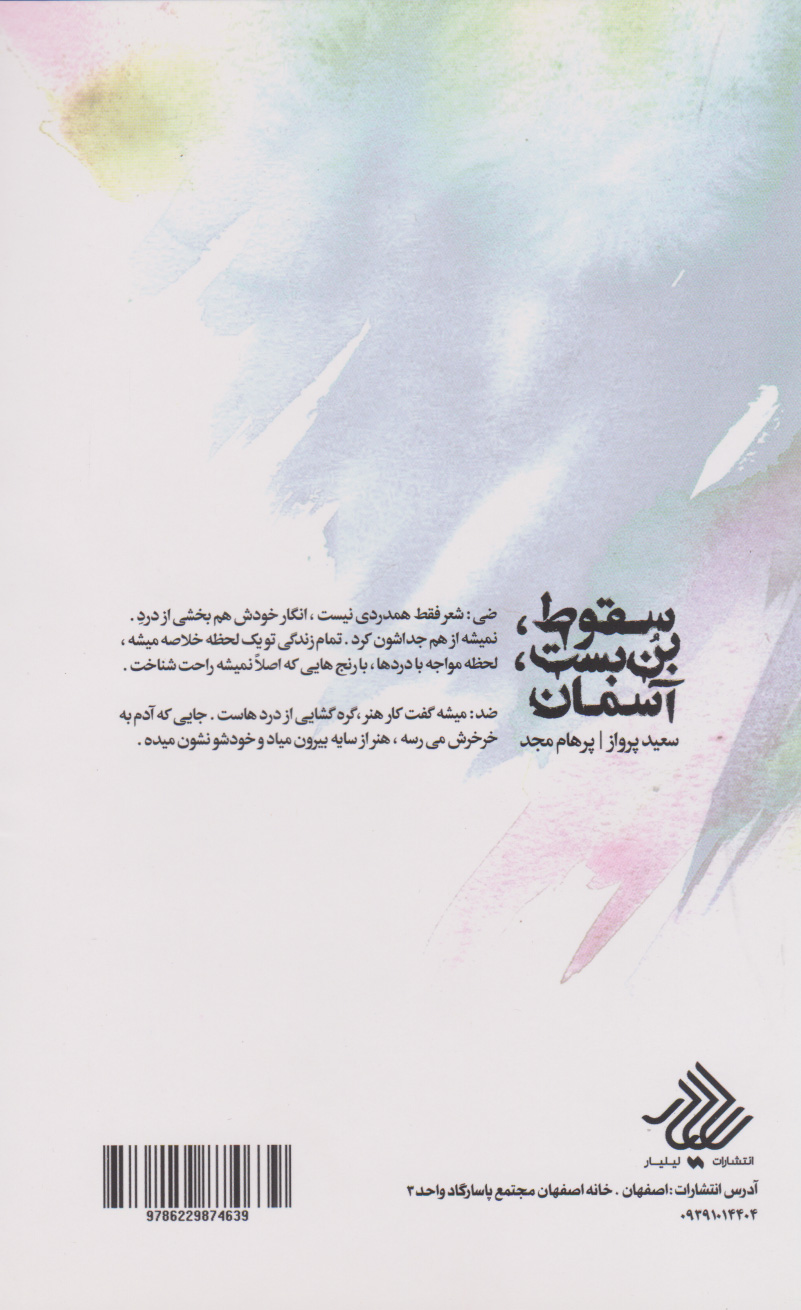 سقوط،
بُن‌بست،
آسمان
سعید پرواز | پرهام مجد
ضی : شعر فقط همدردی نیست ، انگار خودش هم بخشی از دردِ .
نمیشه از هم جداشون کرد . تمام زندگی تو یک لحظه خلاصه میشه ،
لحظه مواجه با دردها ، با رنج هایی که اصلاً نمیشه راحت شناخت .
ضد : میشه گفت کار هنر ،گره گشایی از درد هاست . جایی که آدم به
خرخرش می رسه ، هنر از سایه بیرون میاد و خودشو نشون میده .
انتشارات لیلیار
آدرس انتشارات : اصفهان . خانه اصفهان مجتمع پاسارگاد واحد ۳
۰۹۳۹۱۰۱۴۴۰۴
9786229874639